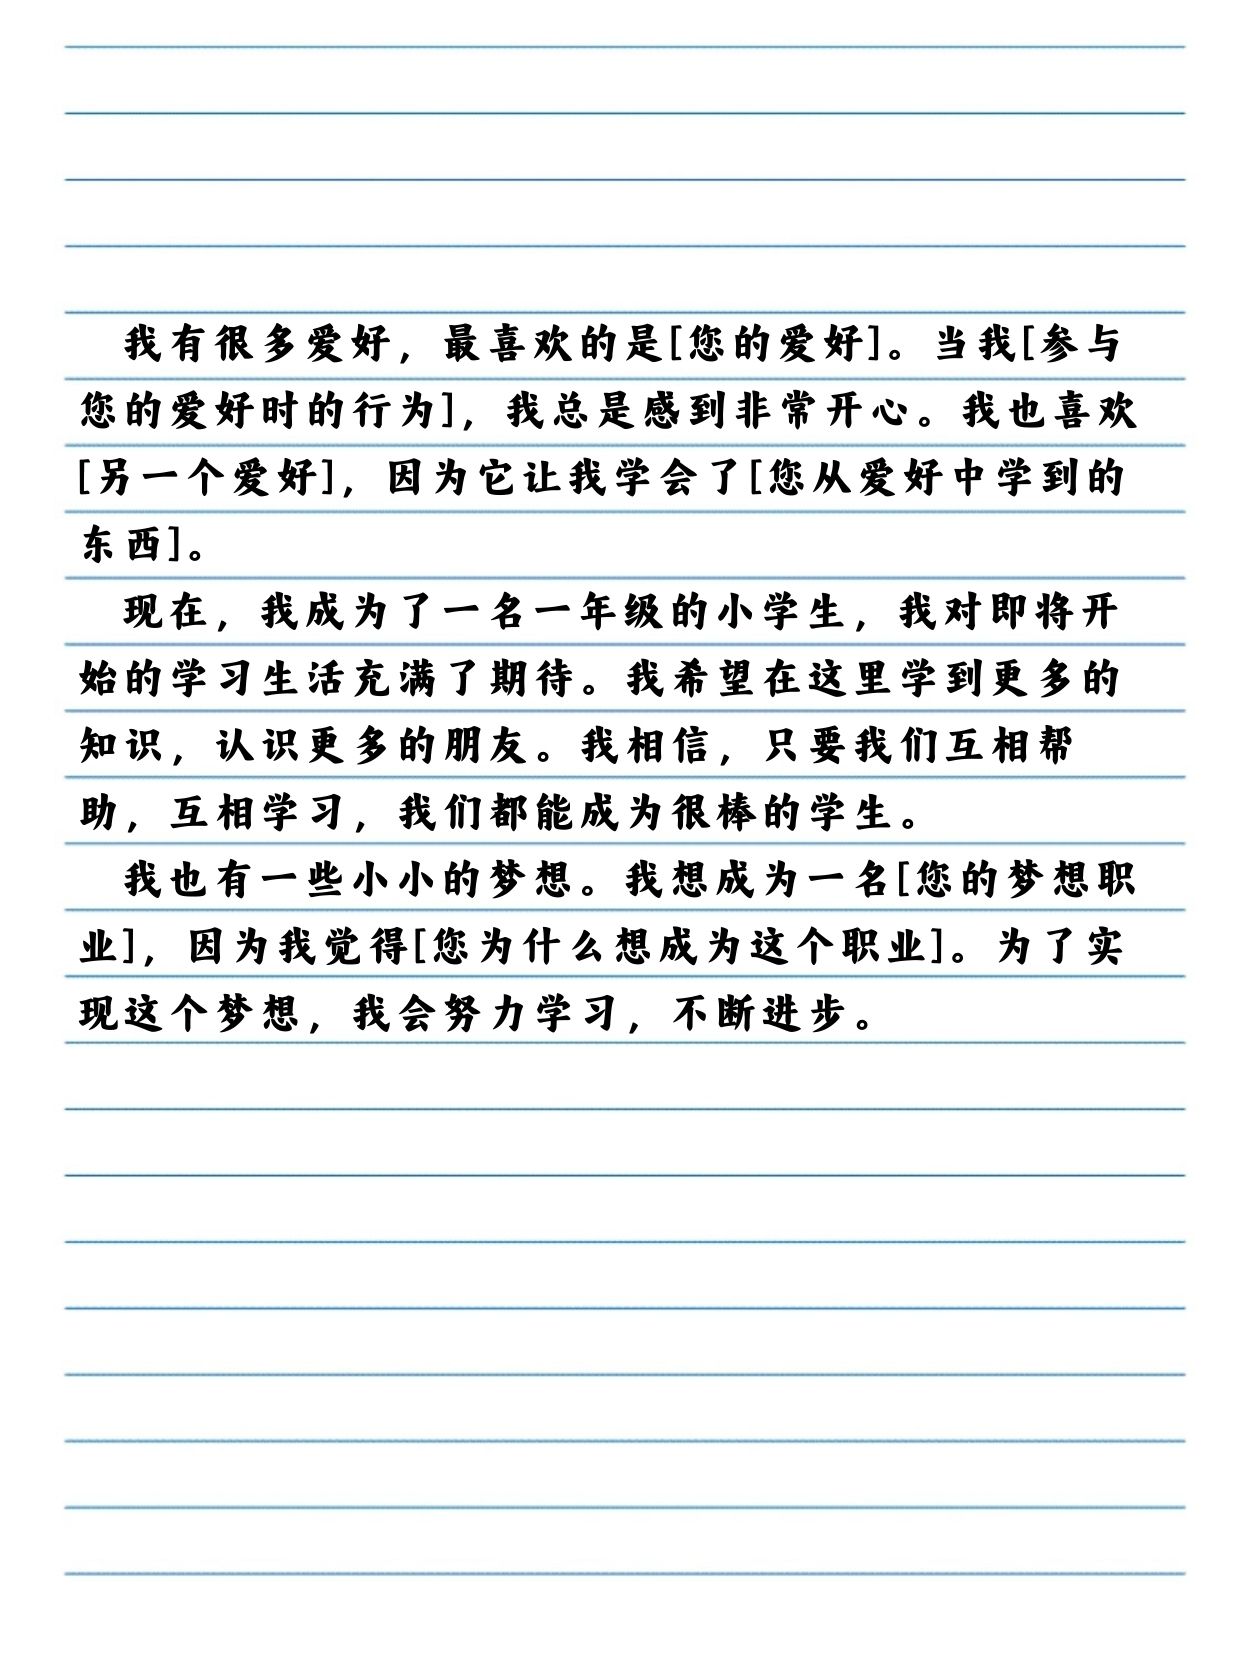 我有很多爱好，最喜欢的是[您的爱好]。当我[参与
您的爱好时的行为]，我总是感到非常开心。我也喜欢
[另一个爱好]，因为它让我学会了[您从爱好中学到的
东西]。
现在，我成为了一名一年级的小学生，我对即将开
始的学习生活充满了期待。我希望在这里学到更多的
知识，认识更多的朋友。我相信，只要我们互相帮
助，互相学习，我们都能成为很棒的学生。
我也有一些小小的梦想。我想成为一名[您的梦想职
业]，因为我觉得[您为什么想成为这个职业]。为了实
现这个梦想，我会努力学习，不断进步。